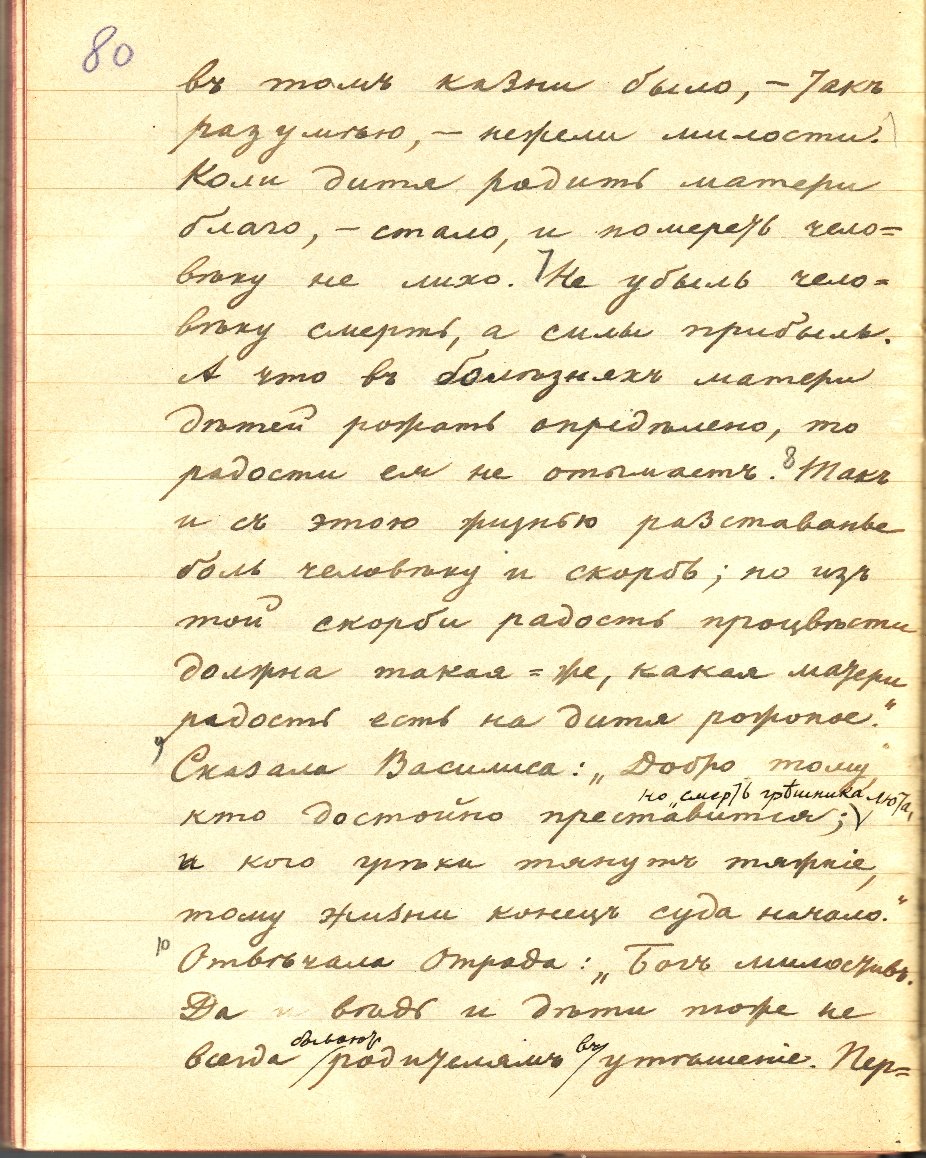 80
въ томъ казни было, – такъ
разумѣю, – нежели милости.
Коли дитя родить матери
благо, – стало, и помереть чело=
вѣку не лихо. 7 Не убыль чело=
вѣку смерть, а силы прибыль.
А что въ болѣзняхъ матери
дѣтей рожать опредѣлено, то
радости ея не отымаетъ. 8 Такъ
и съ этою жизнью разставанье
боль человѣку и скорбь; но изъ
той скорби радость процвѣсти
должна такая=же, какая матери
радость есть на дитя рожоное."
9 Сказала Василиса: „Добро тому,
но „смерть грѣшника люта,
кто достойно преставится;
и кого грѣхи тянутъ тяжкіе,
тому жизни конецъ суда начало."
10 Отвѣчала Отрада: „Богъ милостивъ.
Да вѣдь и дѣти тоже не
бываютъ въ
всегда родителямъ утѣшеніе. Пер=